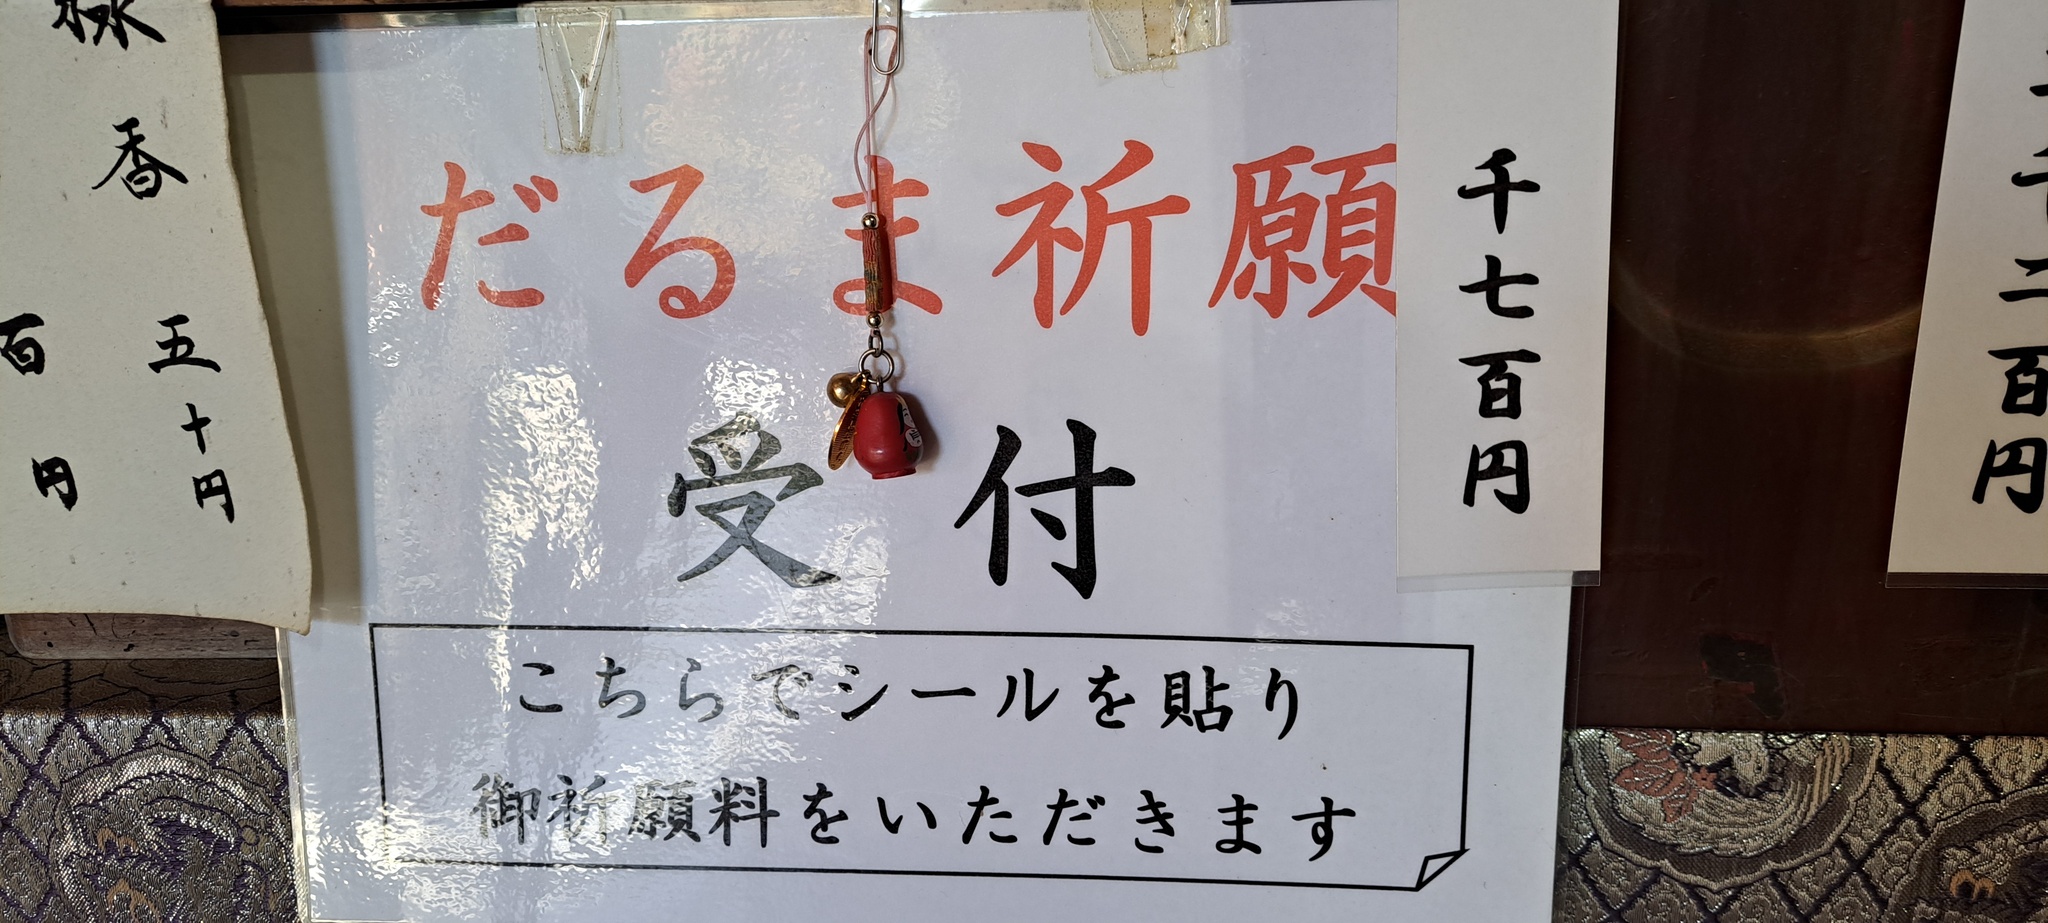 線香
五十円
百円
だるま祈願
受付
こちらでシールを貼り
御祈願料をいただきます
千七百円
二百円